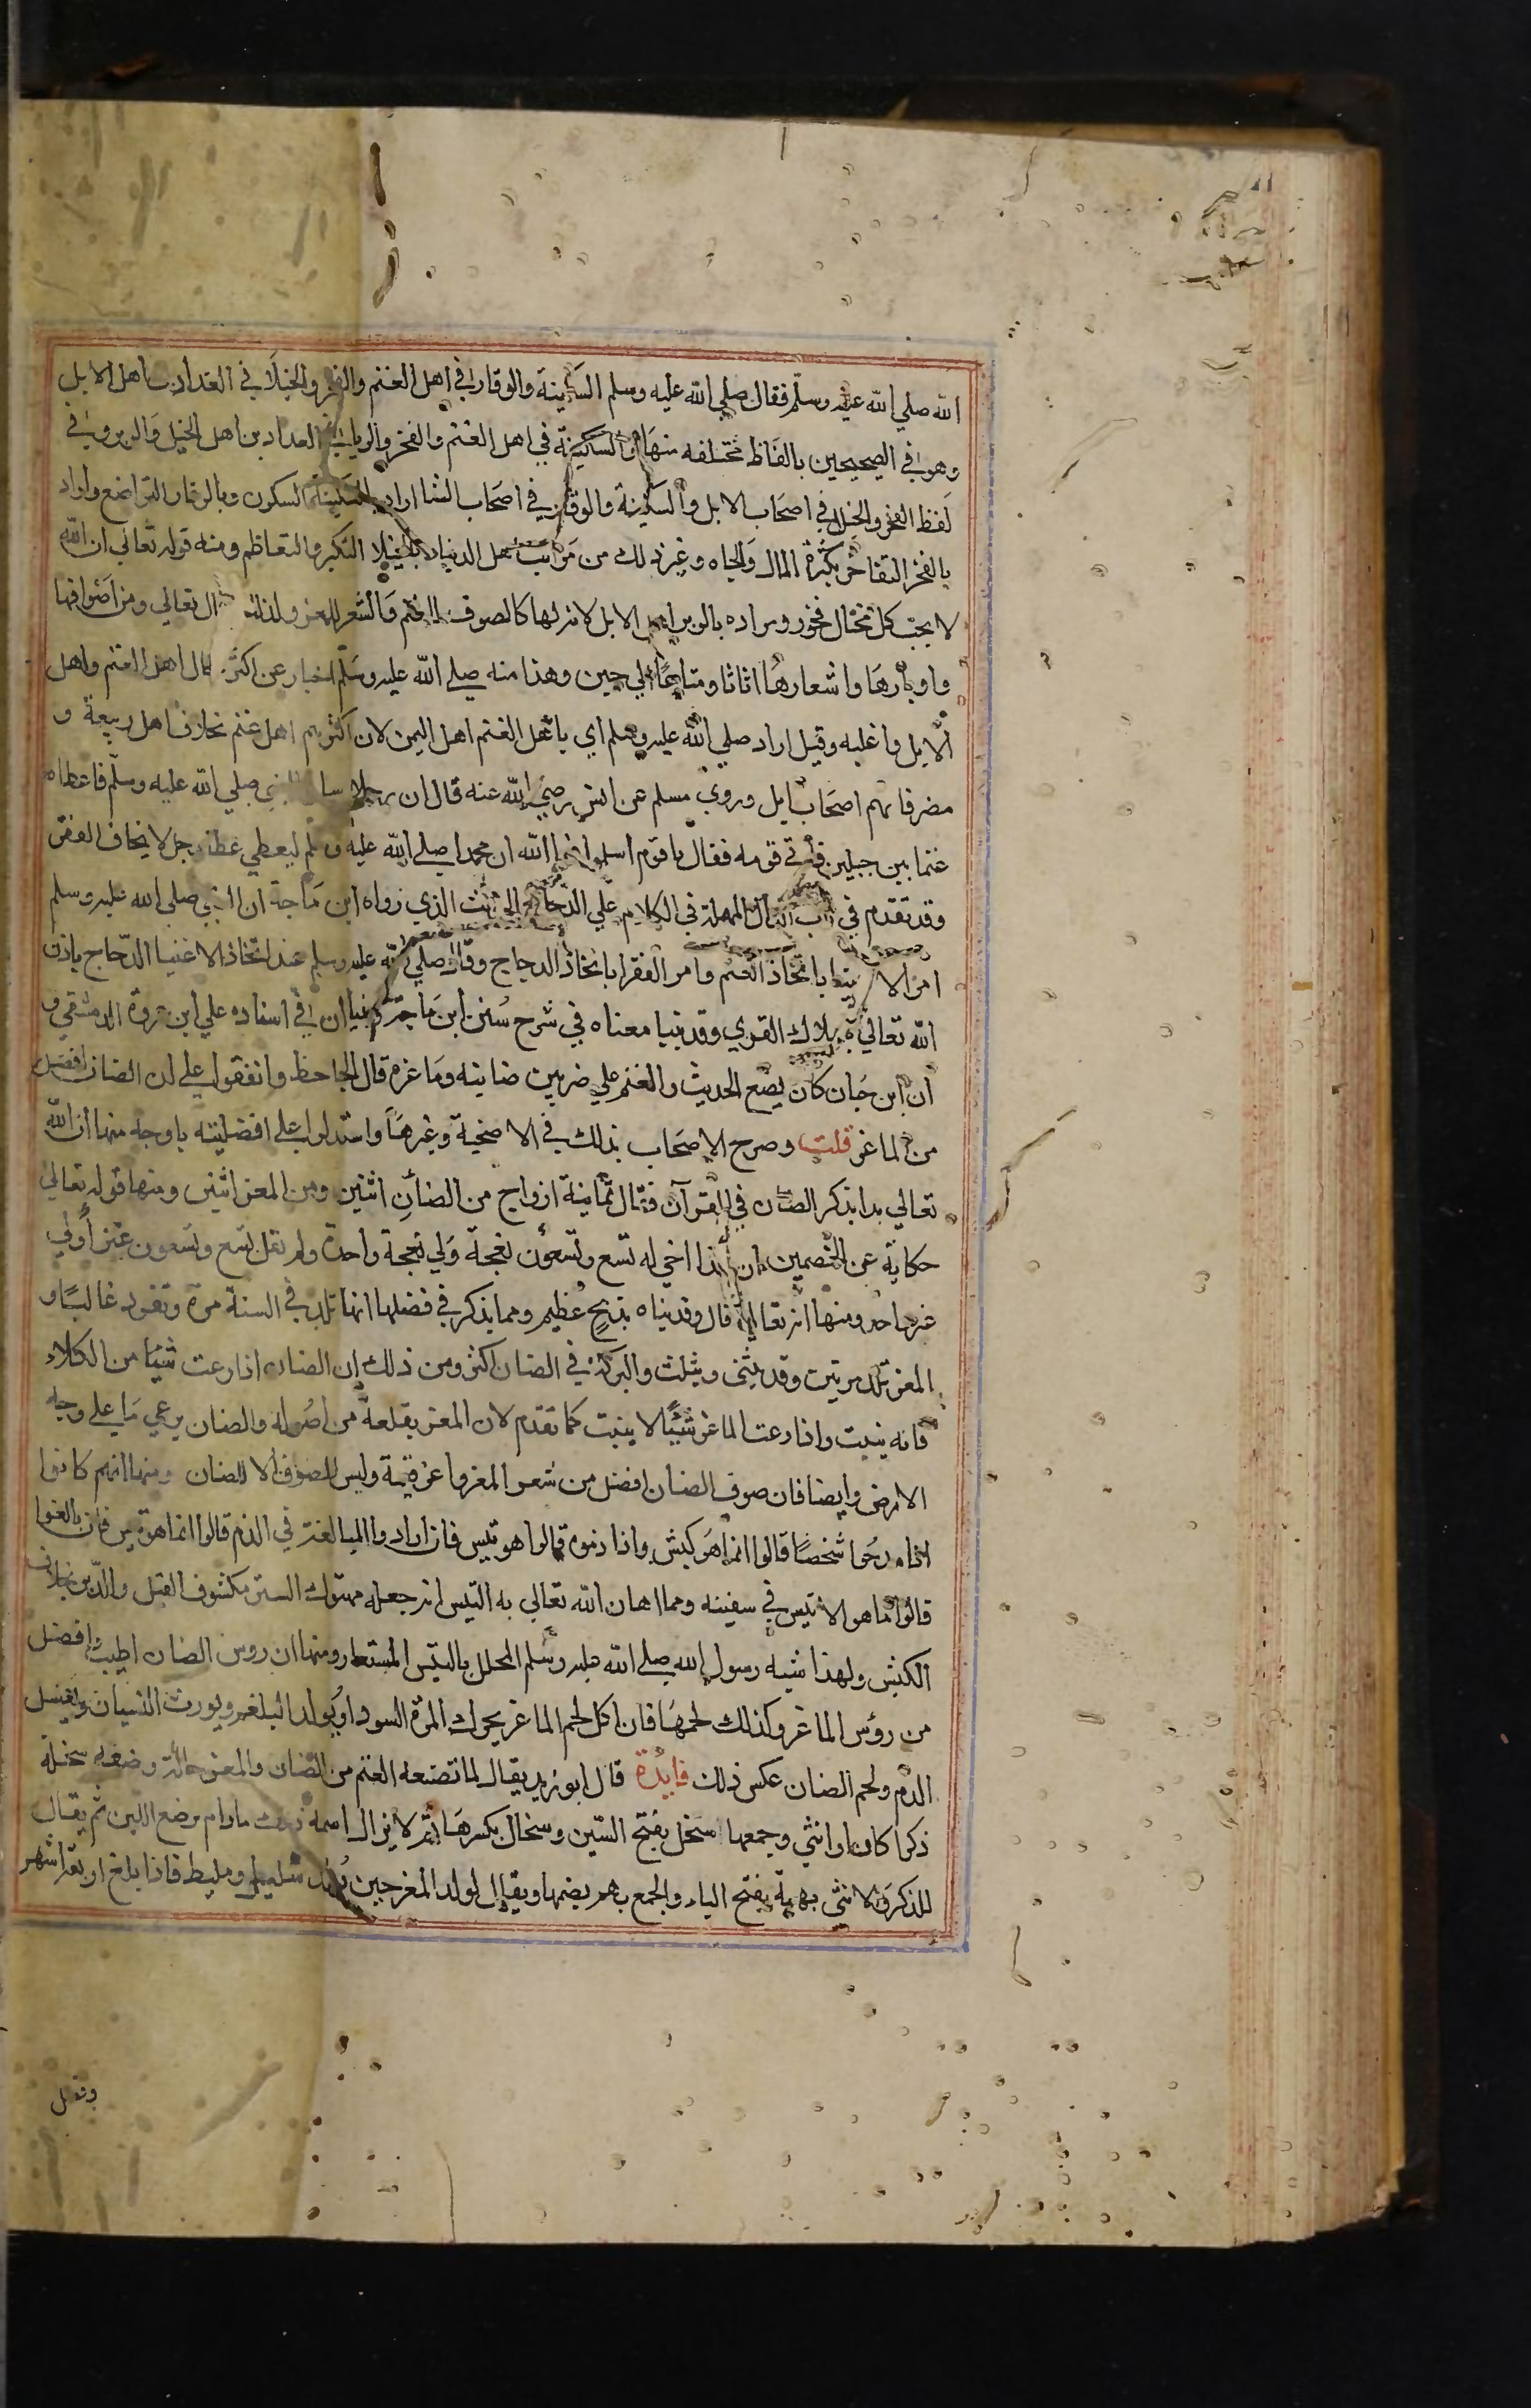 الله صلي الله عليه وسلم فقال صلي الله عليه وسلم السكينة والوقار في اهل الغنم والفخر والخيلا في الفدادين اهل الابل
وهو في الصحيحين بالفاظ مختلفه منها والسكينة في اهل الغنم والفخر والريا في الفدادين اهل الخيل والوبر وفي
لفظ الفخر والخيلا في اصحاب الابل والسكينة والوقار في اصحاب الشا اراد بالسكينة السكون وبالوقار التواضع واراد
بالفخر التفاخر بكثرة المال والجاه وغير ذلك من مراتب اهل الدنيا وبالخيلا التكبر والتعاظم ومنه قوله تعالي ان الله
لا يحب كل مختال فخور ومراده بالوبر اهل الابل لانه لها كالصوف للغنم والشعر للمعز ولذلك قال تعالي ومن اصوافها
واوبارها واشعارها اثاثا ومتاعا الي حين وهذا منه صلي الله عليه وسلم اخبار عن اكثر حال اهل الغنم واهل
الابل واغلبه وقيل اراد صلي الله عليه وسلم اي باهل الغنم اهل اليمن لان اكثرهم اهل غنم بخلاف اهل ربيعة و
مضر فانهم اصحاب ابل وروي مسلم عن انس رضي الله عنه قال ان رجلا سال النبي صلي الله عليه وسلم فاعطاه
غنما بين جبلين فاتي قومه فقال يا قوم اسلموا فوالله ان محمدا صلي الله عليه وسلم ليعطي عطا رجل لا يخاف الفقر
وقد تقدم في باب الدال المهملة في الكلام علي الدجاج الحديث الذي رواه ابن ماجة ان النبي صلي الله عليه وسلم
امر الاغنيا باتخاذ الغنم وامر الفقرا باتخاذ الدجاج وقال صلي الله عليه وسلم عند اتخاذ الاغنيا الدجاج ياذن
الله تعالي بهلاك القري وقد بينا معناه في شرح سنن ابن ماجة وبينا ان في اسناده علي ابن عروة الدمشقي و
ان ابن حبان كان يضع الحديث والغنم علي ضربين ضاينه وماعزة قال الجاحظ واتفقوا علي ان الضان افضل
من الماعز قلت وصرح الاصحاب بذلك في الاضحية وغيرها واستدلوا علي افضليته باوجه منها ان الله
تعالي بدا بذكر الضان في القرآن فقال ثمانية ازواج من الضأن اثنين ومن المعز اثنين ومنها قوله تعالي
حكاية عن الخصمين ان هذا اخي له تسع وتسعون نعجة ولي نعجة واحدة ولم يقل تسع وتسعون عنزا ولي
عنز واحد ومنها انه تعالي قال وفديناه بذبح عظيم ومما يذكر في فضلها انها تلد في السنة مرة وتفرد غالبا و
المعز تلد مرتين وقد يثني ويثلث والبركة في الضان اكثر ومن ذلك ان الضان اذا رعت شيئا من الكلاء
فانه ينبت واذا رعت الماعز شيئا لا ينبت كما تقدم لان المعز يقلعه من اصوله والضان يرعي ما علي وجه
الارض وايضا فان صوف الضان افضل من شعر المعز واعز قيمة وليس الصوف الا للضان ومنها انهم كانوا
اذا مدحوا شخصا قالوا انما هو كبش واذا ذموه قالوا هو تيس فان ارادوا المبالغة في الذم قالوا انما هو تيس فان بالغوا
قالوا ما هو الا تيس في سفينه ومما اهان الله تعالي به التيس انه جعله مهتوك الستر مكشوف القبل والدبر بخلاف
الكبش ولهذا شبه رسول الله صلي الله عليه وسلم المحلل بالتيس المستعار ومنها ان روس الضان اطيب وافضل
من رؤس الماعز وكذلك لحمها فان اكل لحم الماعز يحرك المرة السودا ويولد البلغم ويورث النسيان ويفسد
الدم ولحم الضان عكس ذلك فايدة قال ابو زيد يقال لما تضعه الغنم من الضان والمعز حالة وضعه سخلة
ذكرا كان او انثي وجمعها سخل بفتح السين وسخال بكسرها ثم لا يزال اسمه ذلك مادام يرضع اللبن ثم يقال
للذكر والانثي بهمة بفتح الباء والجمع بهم بضمها ويقال لولد المعز حين يولد سليل ومليط فاذا بلغ اربعة اشهر
وفصل